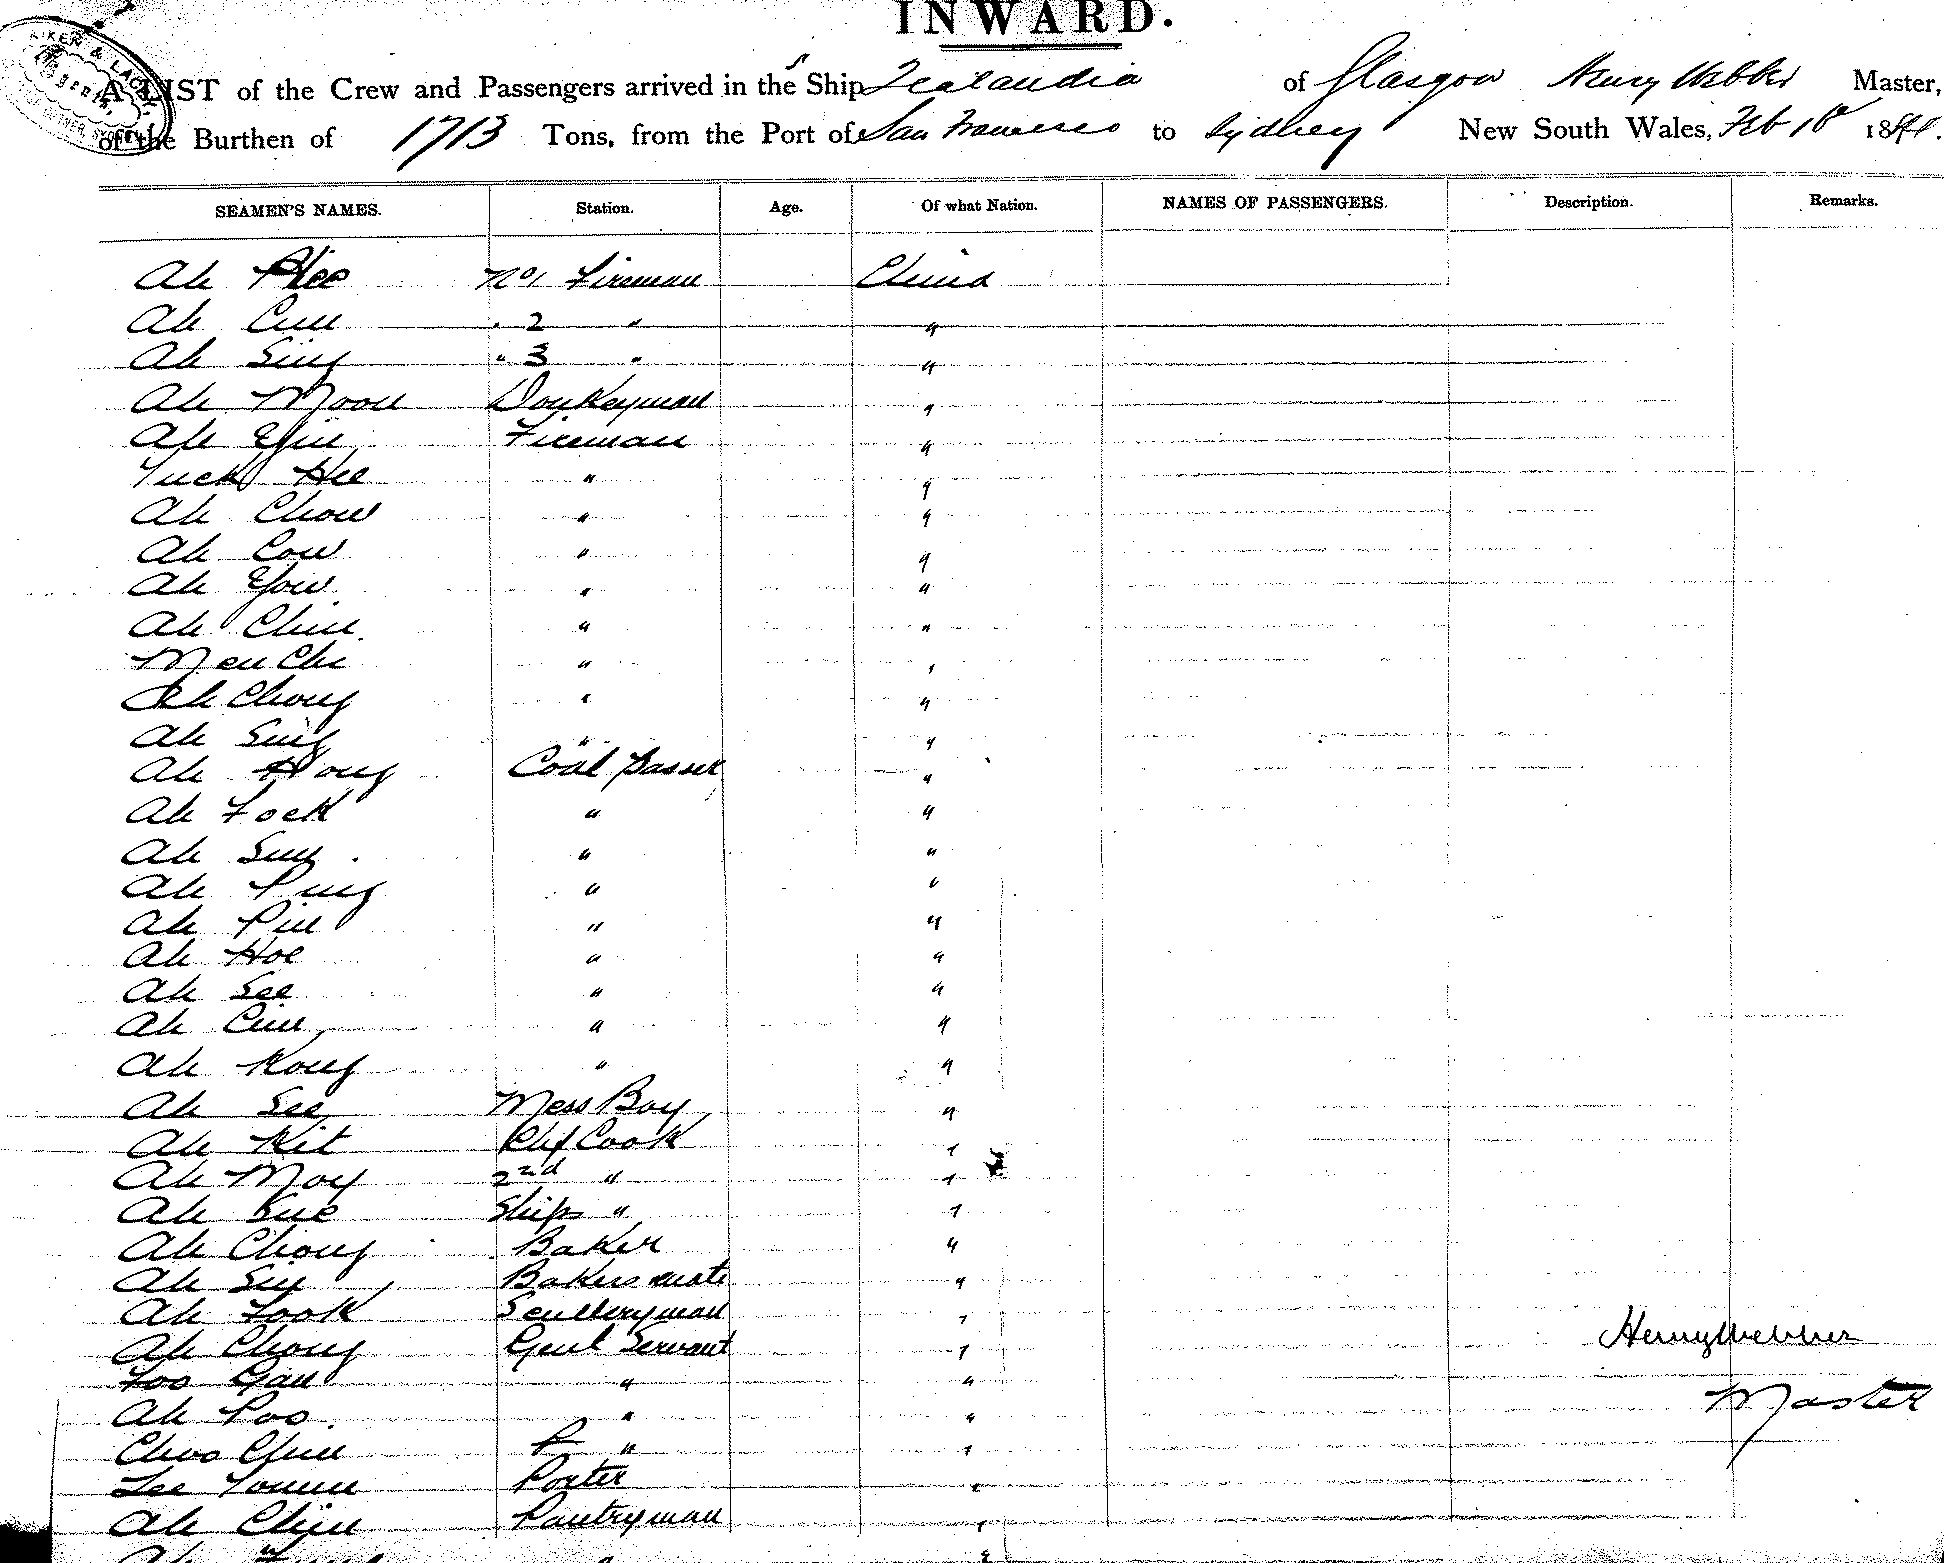 INWARD.
A LIST of the Crew and Passengers arrived in the S Ship Zealandia of Glasgow Henry Webber Master,
of the Burthen of 1713 Tons, from the Port of San Francisco to Sydney New South Wales, Feb 188
SEAMEN'S NAMES. Station. Age. Of what Nation. NAMES OF PASSENGERS. Description. Remarks.
Ah No 1 Fireman China
Ah " 2 " "
Ah Sing " 3 " "
Ah Moon Donkeyman "
Ah Fireman "
Tuck Hee " "
Ah Chow " "
Ah Cow " "
Ah Yow " "
Ah Chin " "
Men Chi " "
Ah Chong " "
Ah Sing " "
Ah Hong Coal Passer "
Ah Fock " "
Ah " "
Ah Ping " "
Ah Pin " "
Ah Hoe " "
Ah See " "
Ah " "
Ah Kong " "
Ah See Mess Boy "
Ah Kit Chf Cook "
Ah Moy 2nd " "
Ah Sue Ships " "
Ah Chong Baker "
Ah Bakers mate "
Ah Fook Sculleryman "
Ah Chong Genl Servant "
Foo Gan " "
Ah Poo " "
Choo Chin " "
Lee Porter "
Ah Chin Pantryman "
Ah " "
Henry Webber
Master